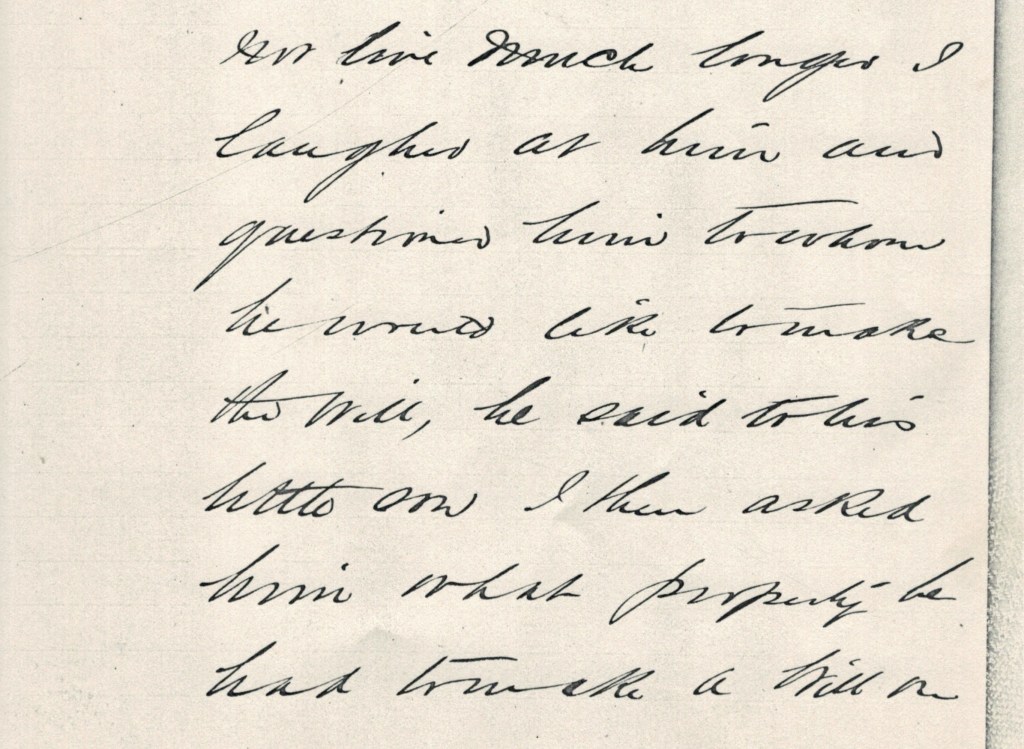 not live much longer I
laughed at him and
questioned him to whom
he would like to make
the Will, he said to his
little son I then asked
him what property he
had to make a Will on